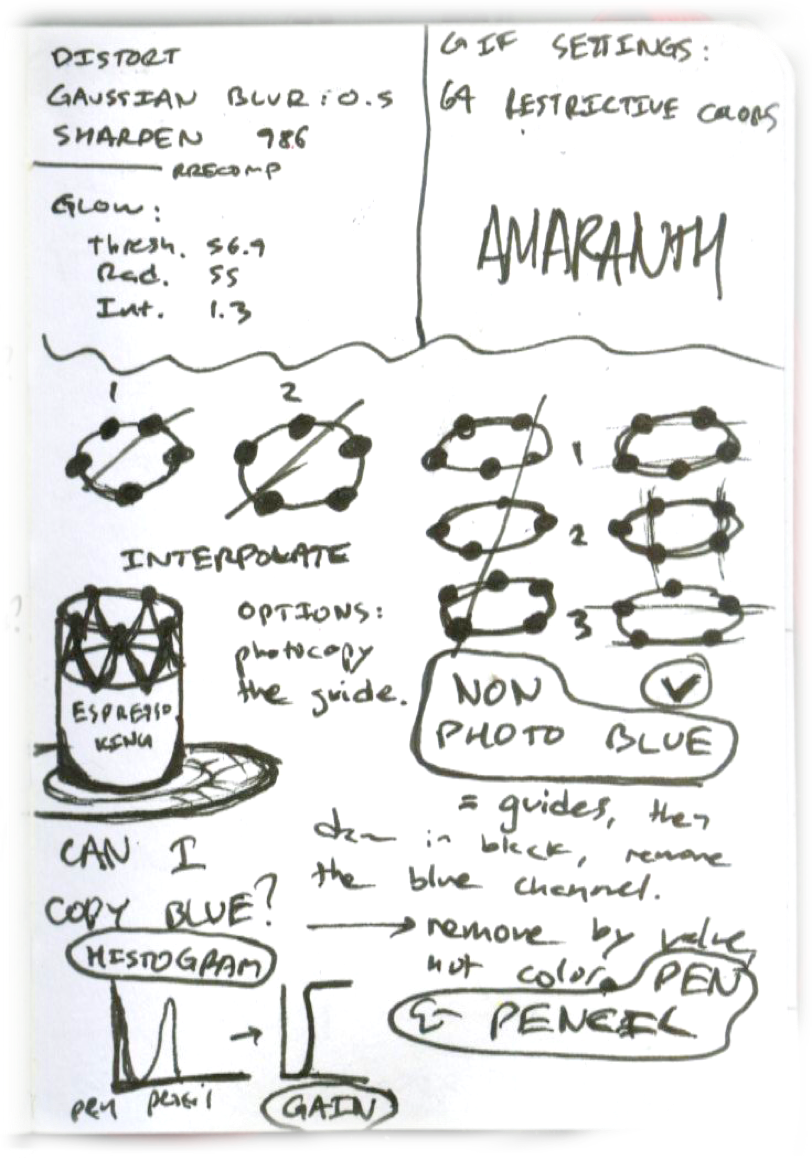 DISTORT
GAUSSIAN BLUR: 0.5
SHARPEN 986
PRECOMP
GLOW:
thresh. 56.9
Rad. 55
Int. 1.3
GIF SETTINGS:
64 RESTRICTIVE COLORS
AMARANTH
1
2
1
2
3
INTERPOLATE
OPTIONS:
photocopy
the guide.
ESPRESSO
KING
NON
PHOTO BLUE
= guides, then
draw in black, remove
the blue channel.
CAN I
COPY BLUE?
remove by value,
not color.
PEN
& PENCIL
HISTOGRAM
pen pencil
GAIN